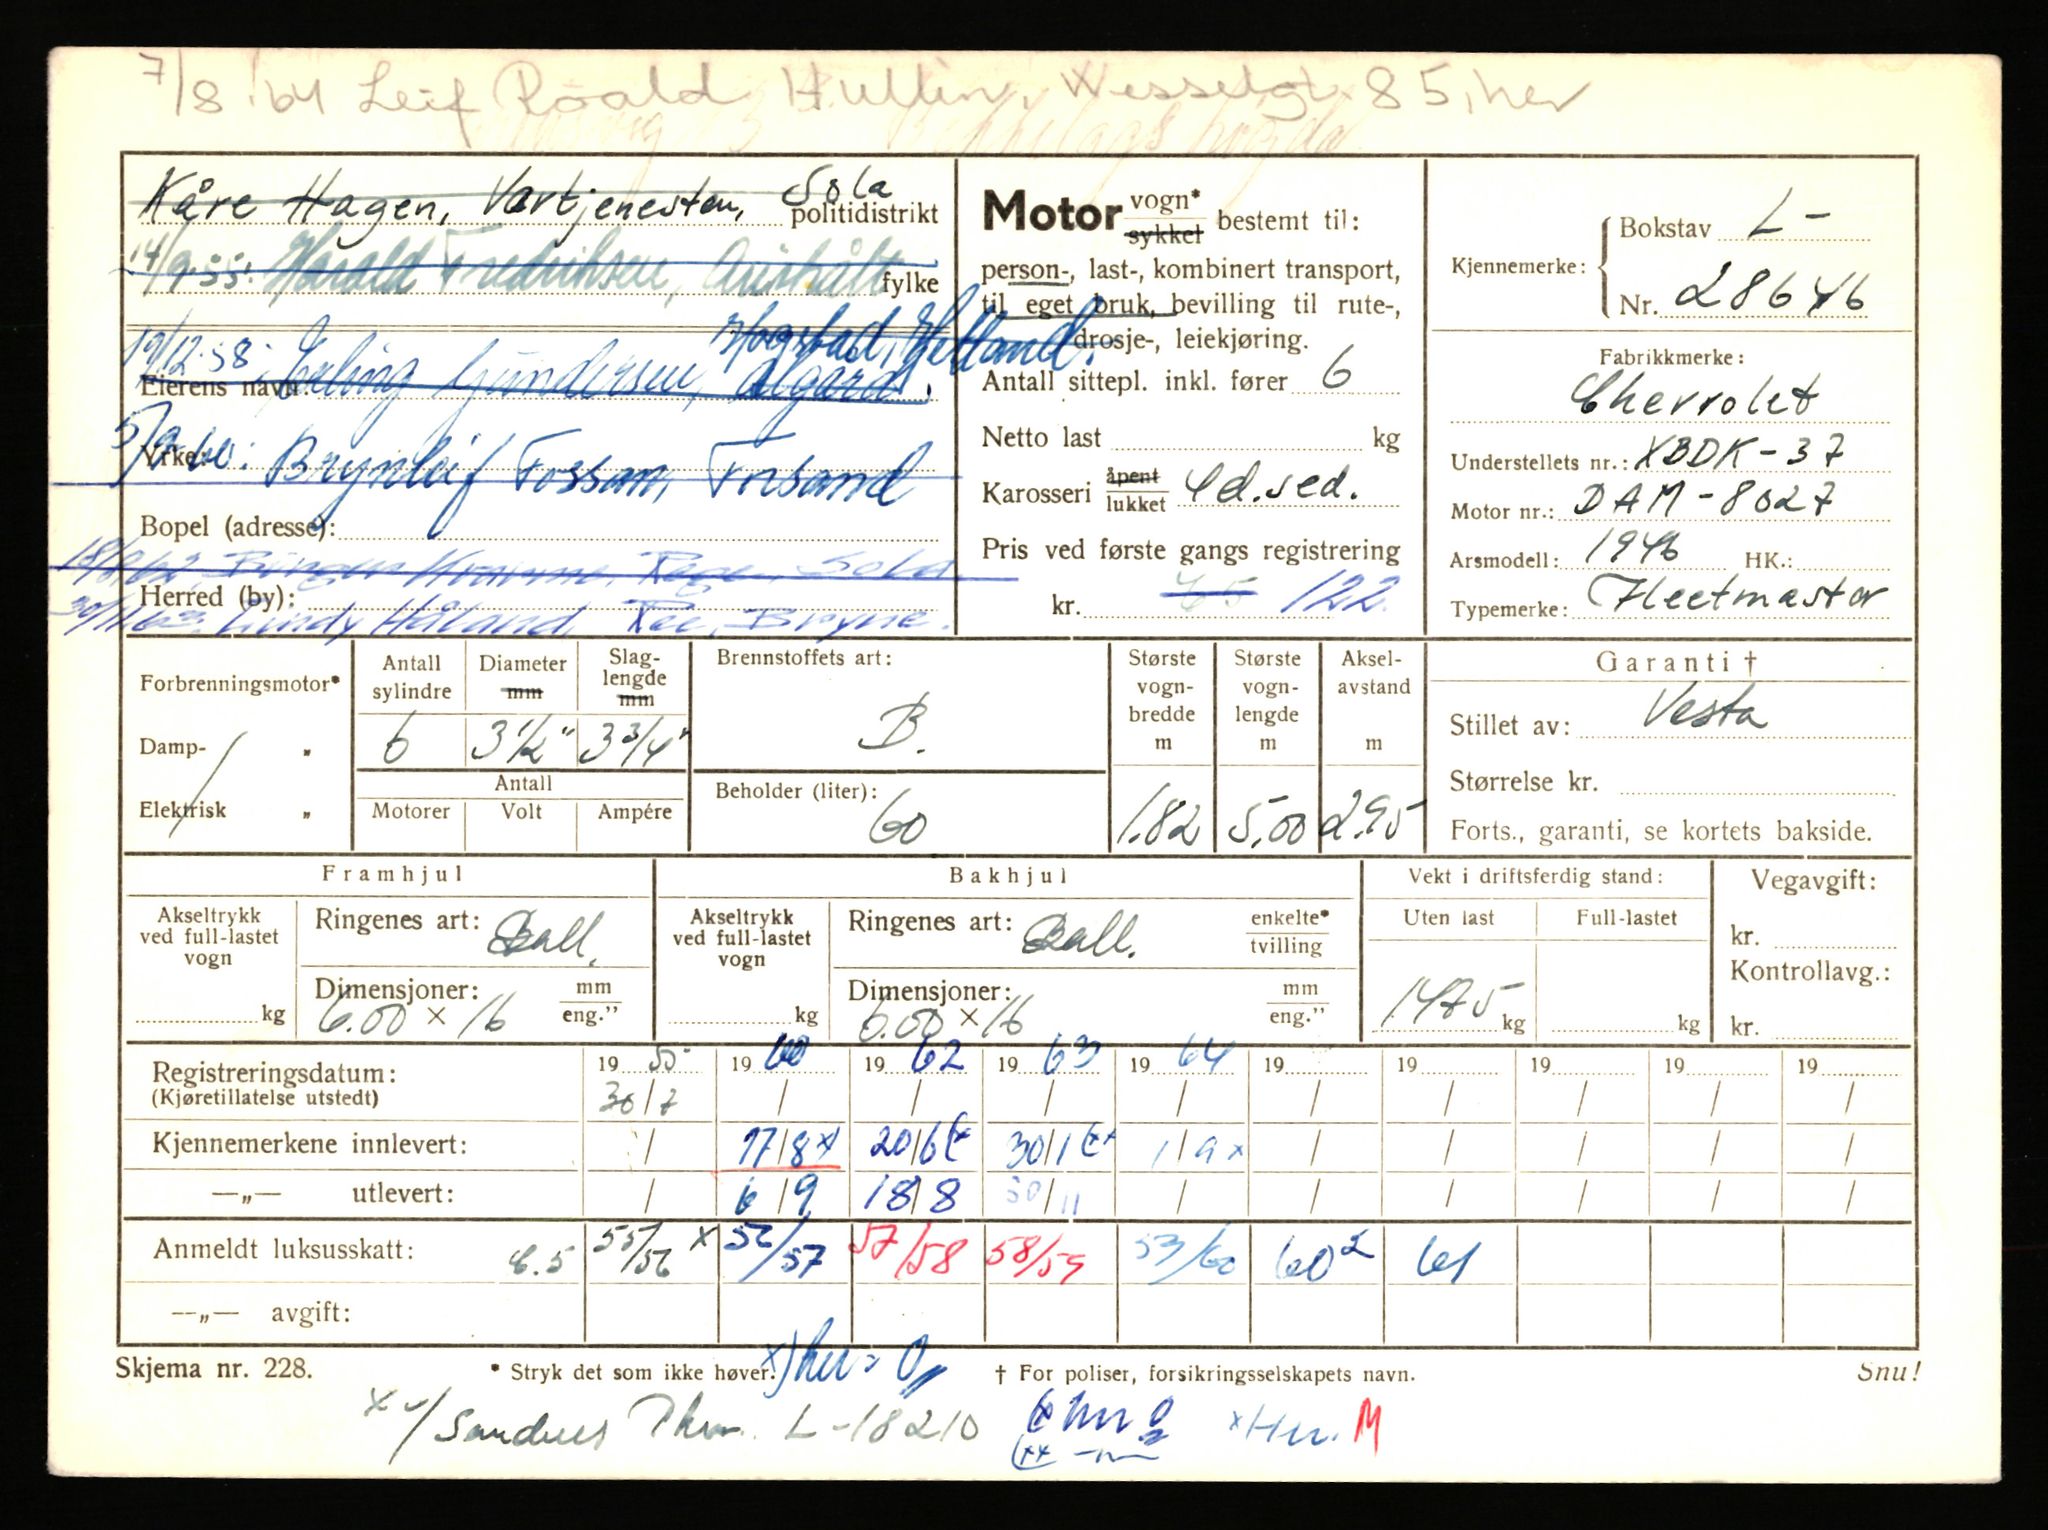 7/8 '64 Leif Roald Hullin, Wesselgt. 85, her
Kåre Hagen, Værtjenesten, Sola politidistrikt
14/9-55: Harald Fredriksen, fylke
19/12-58: Erling Gundersen, Ålgård. Hogstad, Hetland.
Eierens navn:
5/9-60: Brynleif Fossan, Forsand
Yrke:
Bopel (adresse):
18/8-62. Rege, Sola
Herred (by):
30/11-63. Lindy Håland, Ree, Bryne.
Motor vogn* sykkel bestemt til:
person-, last-, kombinert transport,
til eget bruk, bevilling til rute-,
drosje-, leiekjøring.
Antall sittepl. inkl. fører 6
Netto last kg
Karosseri åpent lukket 4d.sed.
Pris ved første gangs registrering
kr. 65 122
Kjennemerke: Bokstav L-
Nr. 28646
Fabrikkmerke:
Chevrolet
Understellets nr.: XBDK-37
Motor nr.: DAM-8027
Årsmodell: 1946 HK.:
Typemerke: Fleetmaster
Forbrenningsmotor*
Damp- "
Elektrisk "
Antall sylindre 6
Diameter mm 3 1/2"
Slaglengde mm 3 3/4"
Antall
Motorer Volt Ampére
Brennstoffets art:
B.
Beholder (liter):
60
Største vognbredde m 1.82
Største vognlengde m 5,00
Akselavstand m 2.95
Garanti †
Stillet av: Vesta
Størrelse kr.
Forts., garanti, se kortets bakside.
Framhjul
Akseltrykk ved full-lastet vogn kg
Ringenes art: Ball.
Dimensjoner: 6.00 × 16 mm eng."
Bakhjul
Akseltrykk ved full-lastet vogn kg
Ringenes art: Ball. enkelte* tvilling
Dimensjoner: 6.00 × 16 mm eng."
Vekt i driftsferdig stand:
Uten last Full-lastet
1475 kg kg
Vegavgift:
kr.
Kontrollavg.:
kr.
Registreringsdatum: 19 55 19 60 19 62 19 63 19 64 19 19 19 19 19
(Kjøretillatelse utstedt) 30/7 / / / / / / / / /
Kjennemerkene innlevert: / 17/8 x 20/6 (x 30/1 (xx 1/9 x / / / / /
—„— utlevert: / 6/9 18/8 30/11 / / / / / /
Anmeldt luksusskatt: 55/56 x 56/57 57/58 58/59 60² 61
—„— avgift:
Skjema nr. 228.
* Stryk det som ikke høver.
x) her = 0
† For poliser, forsikringsselskapets navn.
Snu!
x v/ Sandnes L-18210
(xx —„—
x Her. M